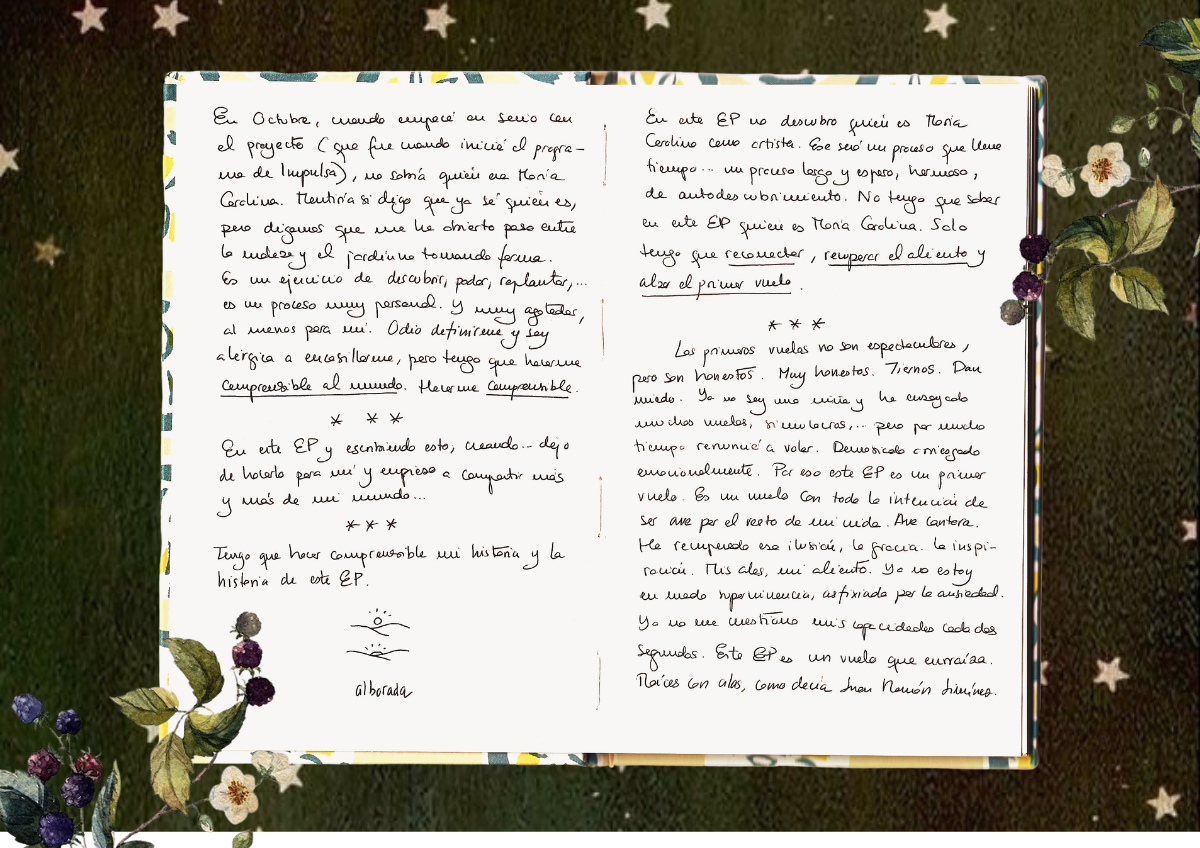 En Octubre, cuando empecé en serio con
el proyecto (que fue cuando inicié el progra-
ma de Impulsa), no sabía quién era María
Carolina. Mentiría si digo que ya sé quién es,
pero digamos que me he abierto paso entre
la maleza y el jardín va tomando forma.
Es un ejercicio de descubrir, podar, replantar,...
es un proceso muy personal. Y muy agotador,
al menos para mí. Odio definirme y soy
alérgica a encasillarme, pero tengo que hacerme
comprensible al mundo. Hacerme comprensible.
* * *
En este EP y escribiendo esto, cuando... dejo
de hacerlo para mí y empiezo a compartir más
y más de mi mundo...
* * *
Tengo que hacer comprensible mi historia y la
historia de este EP.
alborada
En este EP no descubro quién es María
Carolina como artista. Ese será un proceso que lleve
tiempo... un proceso largo y espeso, hermoso,
de autodescubrimiento. No tengo que saber
en este EP quién es María Carolina. Solo
tengo que reconectar, recuperar el aliento y
alzar el primer vuelo.
* * *
Los primeros vuelos no son espectaculares,
pero son honestos. Muy honestos. Tiernos. Dan
miedo. Ya no soy una niña y he ensayado
muchos vuelos, simulacros,... pero por mucho
tiempo renuncié a volar. Demasiado arriesgado
emocionalmente. Por eso este EP es un primer
vuelo. Es un vuelo con toda la intención de
ser ave por el resto de mi vida. Ave cantora.
He recuperado esa ilusión, la gracia. la inspi-
ración. Mis alas, mi aliento. Ya no estoy
en modo supervivencia, asfixiada por la ansiedad.
Ya no me cuestiono mis capacidades cada dos
segundos. Este EP es un vuelo que enraíza.
Raíces con alas, como decía Juan Ramón Jiménez.